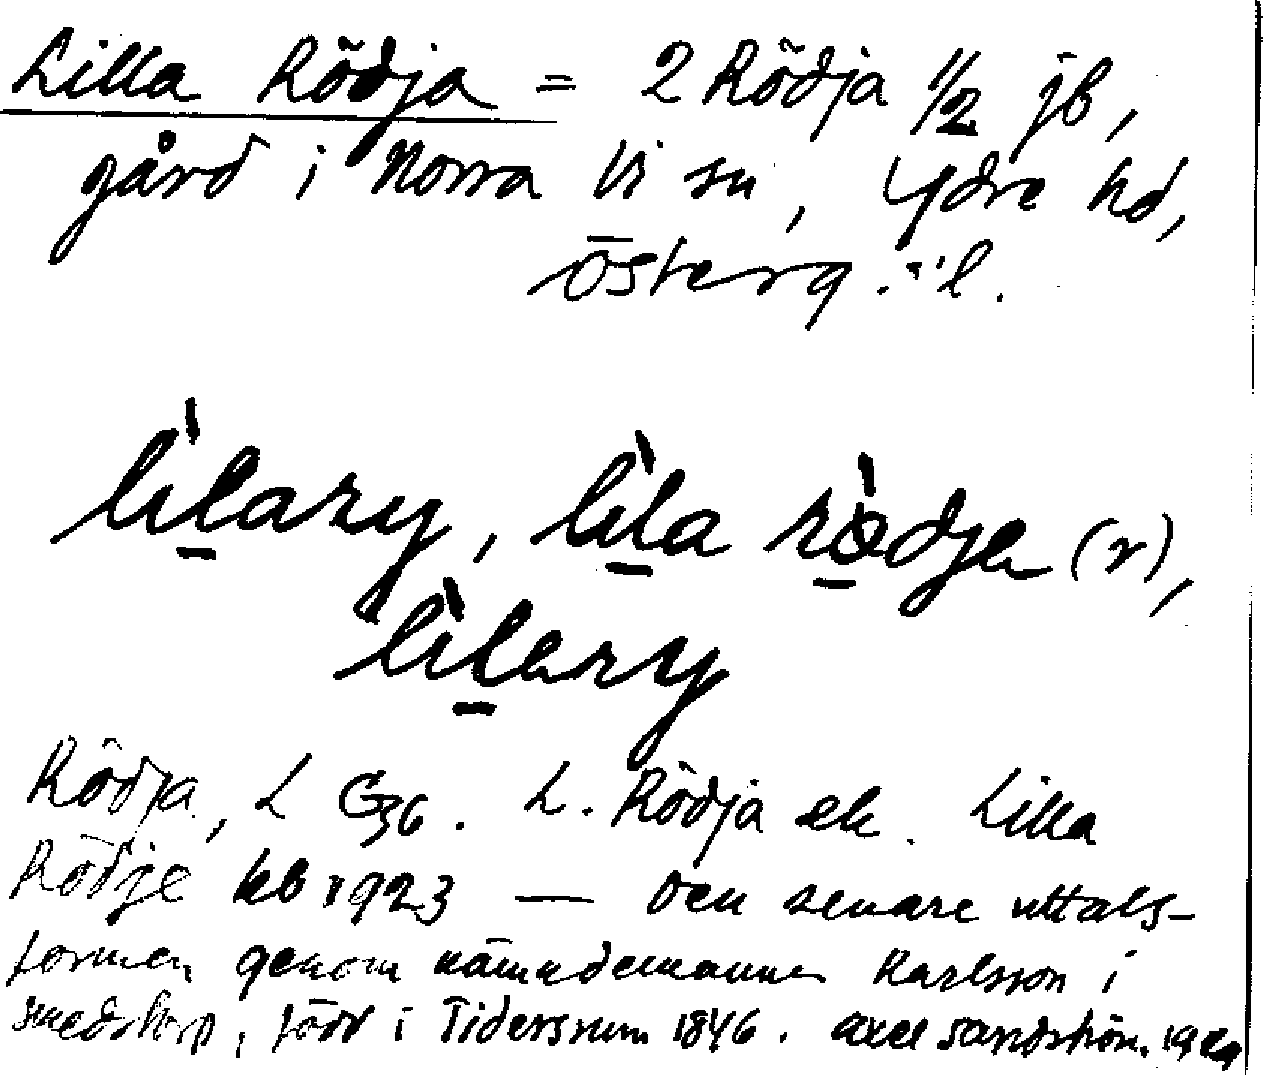 Lilla Rödja = 2 Rödja 1/2 jb,
gård i Norra Vi sn, Ydre hd,
Österg. l.
lìlary, lìla rödja (r),
lìlary
Rödja, L G36. L. Rödja ek. Lilla
Rödje kb 1923 — Den senare uttals-
formen genom nämndemannen Karlsson i
Smedstorp, född i Tidersrum 1846. Axel Sandström.